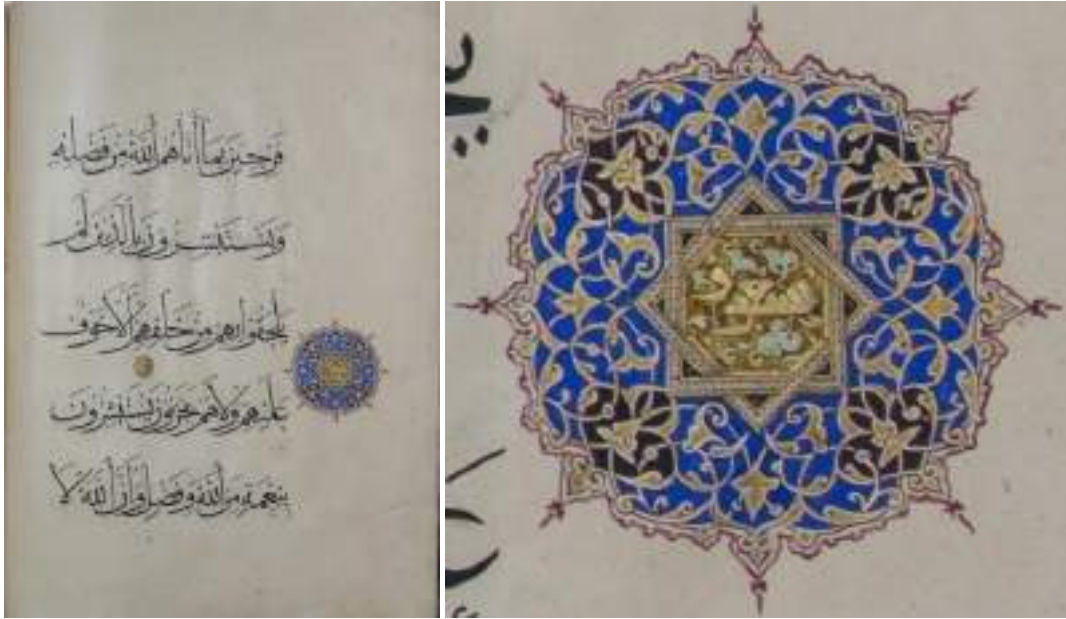 فَرِحِينَ بِمَا أَتَاهُمُ اللَّهُ مِنْ فَضْلِهِ
وَيَسْتَبْشِرُونَ بِالَّذِينَ لَمْ
يَلْحَقُوا بِهِمْ مِنْ خَلْفِهِمْ أَلَّا خَوْفٌ
عَلَيْهِمْ وَلَا هُمْ يَحْزَنُونَ يَسْتَبْشِرُونَ
بِنِعْمَةٍ مِنَ اللَّهِ وَفَضْلٍ وَأَنَّ اللَّهَ لَا